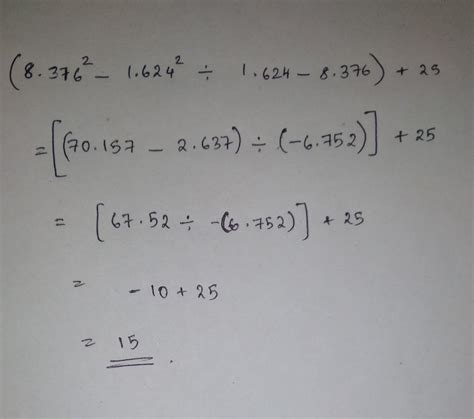 (8.376² - 1.624² ÷ 1.624 - 8.376) + 25
= [(70.157 - 2.637) ÷ (-6.752)] + 25
= [67.52 ÷ -(6.752)] + 25
= - 10 + 25
= 15.